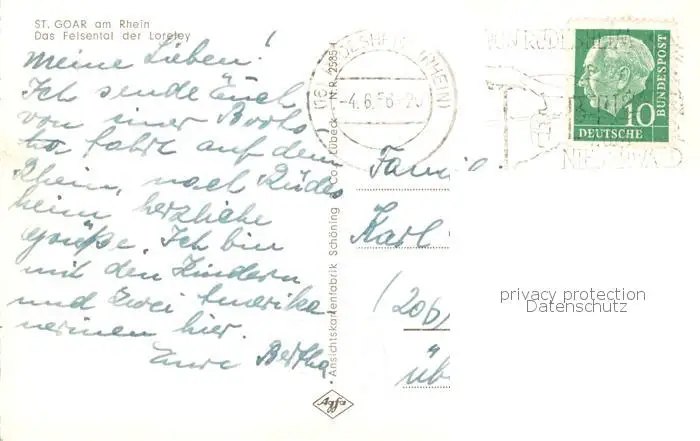 ST. GOAR am Rhein
Das Felsental der Loreley
Meine Lieben!
Ich sende Euch
von einer Boots
fahrt auf dem
Rhein, nach Rüdes
heim herzliche
Grüße. Ich bin
mit den Kindern
und zwei Amerika
nerinnen hier.
Eure Bertha
Ansichtskartenfabrik Schöning & Co., Lübeck - N.R. 2585
-4.6.56-20
VON RÜDESHEIM
10
DEUTSCHE
BUNDESPOST
Famil
Karl
(20b)
üb
privacy protection
Datenschutz
Agfa